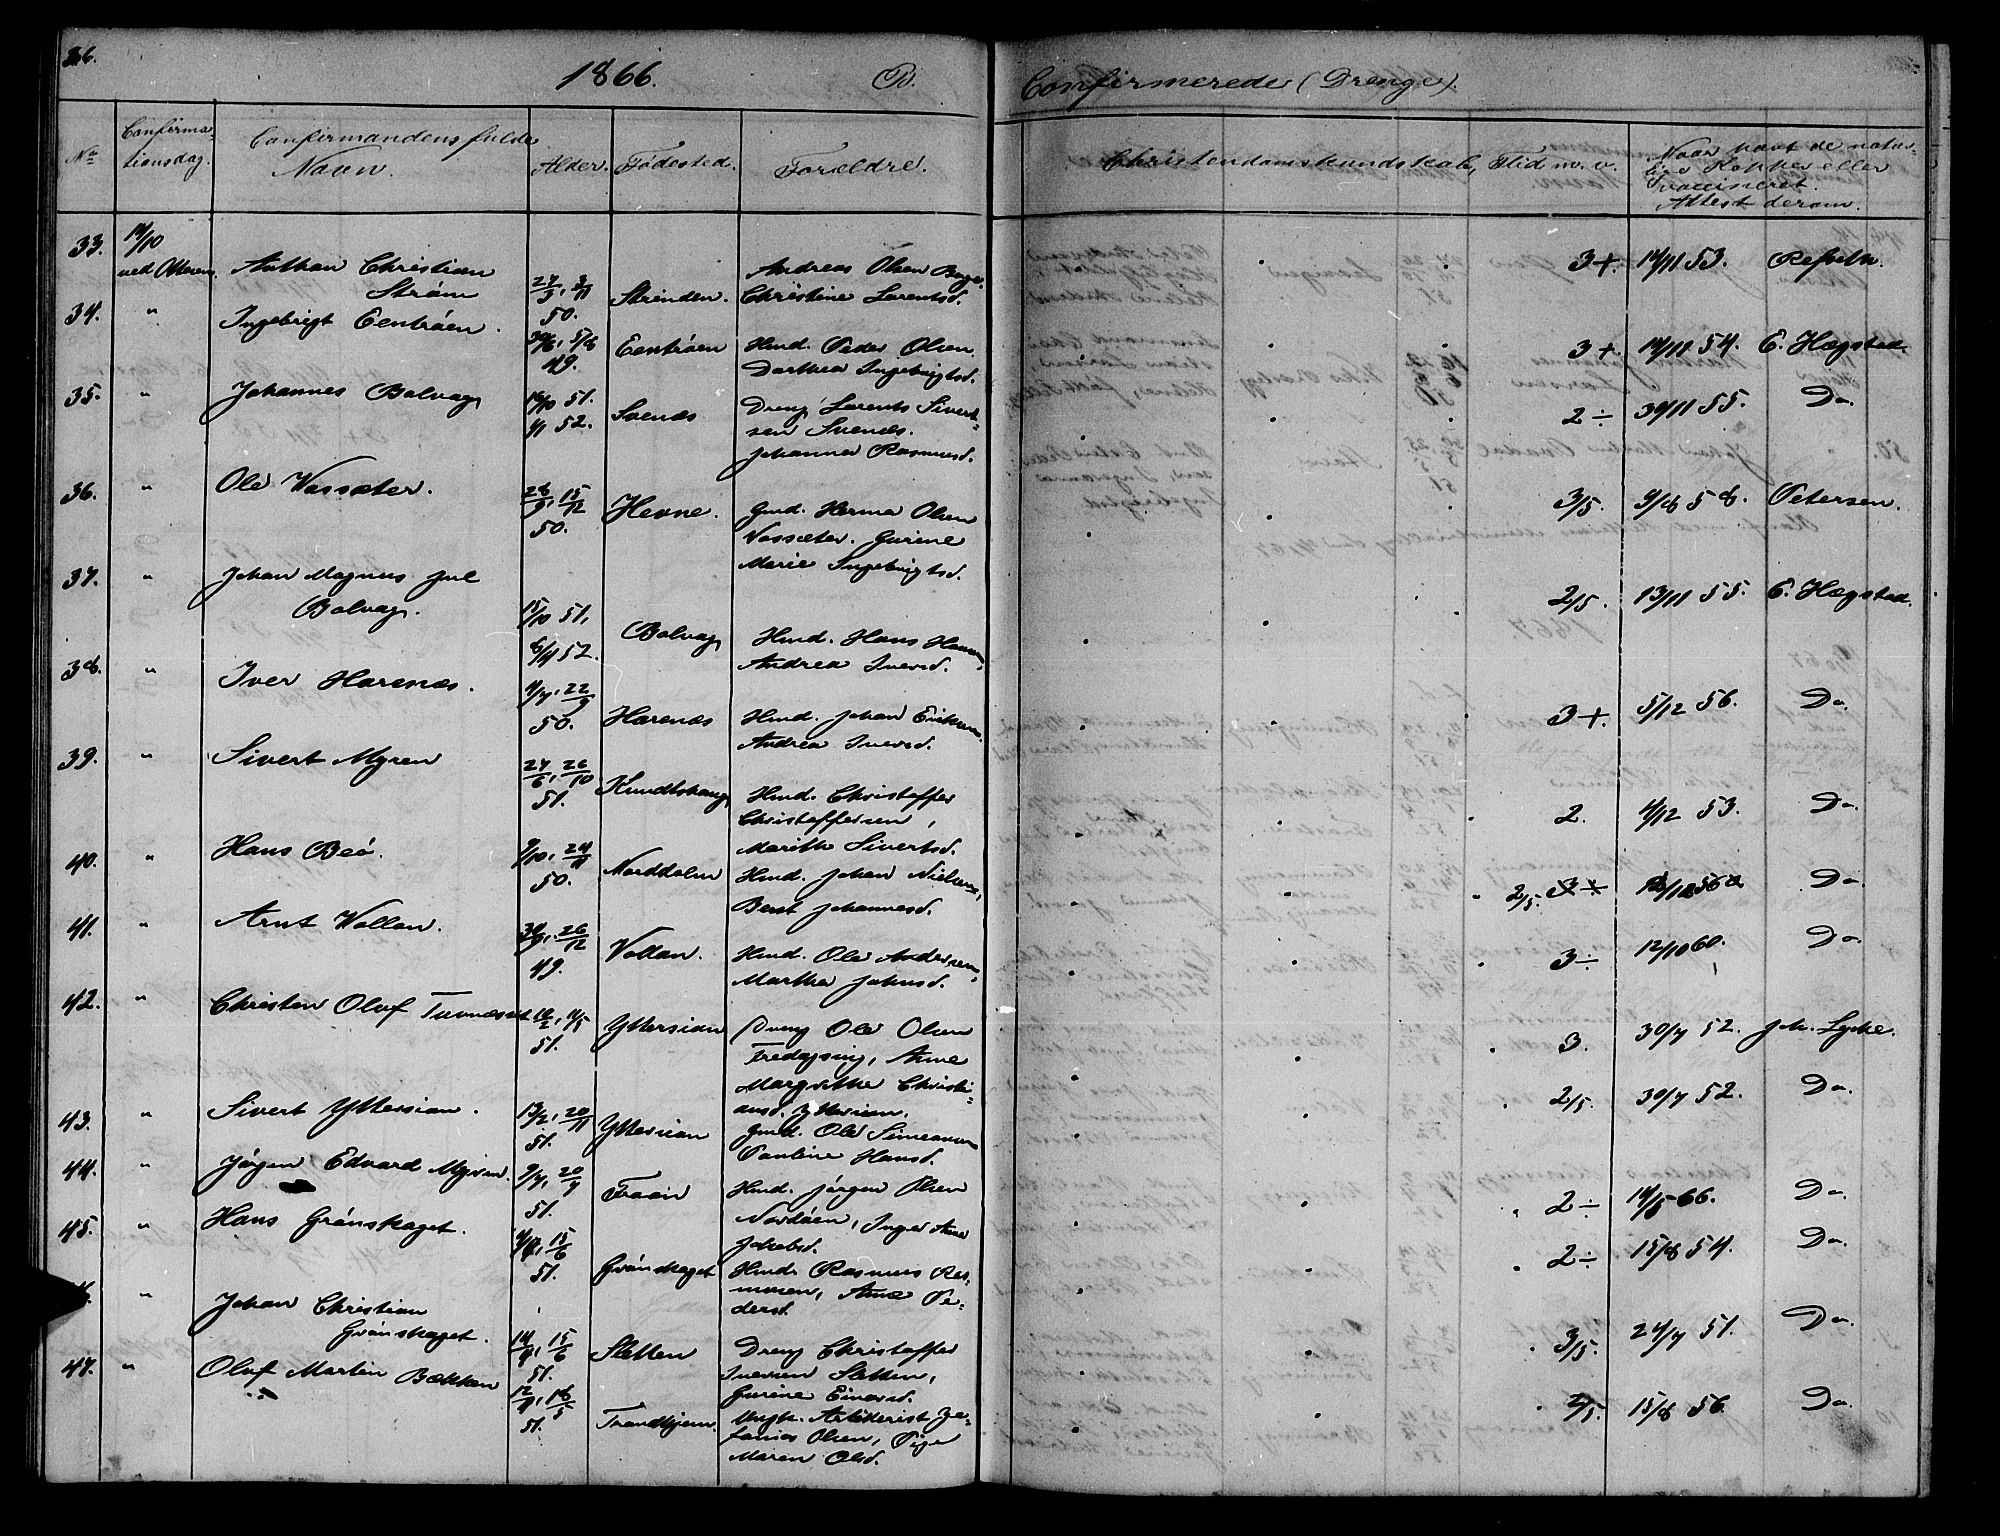 1866.
B.
Confirmerede (Drenge).
No
Confirma-
tionsdag.
Confirmandens fulde
Navn.
Alder.
Fødested.
Forældre.
Christendomskundskab, Flid m. v.
Naar havt de natur-
lige Kopper eller
vaccineret.
Attest derom.
33. 14/10
ved Otteren
Anthon Christian
Strøm
27/9, 3/11
50.
Strinden.
Andreas Olsen
Christine Larentsd.
3+. 14/11 53.
34. " Ingebrigt Eentrøen.
49.
Eentrøen
Hmd. Peder Olsen
Dorthea Ingebrigtsd.
3+. 14/11 54. E. Hægstad.
35. " Johannes Bolvag
16/10 51.
4/1 52.
Svenæs
Dreng Larents Sivert-
sen Svenæs.
Johanna Rasmusd.
2÷ 30/11 55. Do.
36. " Ole Vassæter.
28/9, 15/12
50.
Hevne.
Gmd. Herman Olsen
Vassæter. Gurine
Marie Ingebrigtsd.
3/5. 9/8 58. Petersen.
37. " Johan Magnus Jul
Bolvag.
15/10 51,
6/4 52.
Bolvag
Hmd. Hans Hansen,
Andrea Iversd.
2/5. 13/11 55. E. Hægstad.
38. " Iver Harenæs.
4/7, 22/9
50.
Harenæs
Hmd. Johan Eriksen.
Andrea Iversd.
3+. 5/12 56. Do.
39. " Sivert Myren
27/6, 26/10
51.
Kundtshaug
Hmd. Christoffer
Christoffersen,
Marith Sivertsd.
2. 4/12 53. Do.
40. " Hans Beø.
9/10, 24/11
50.
Norddolm
Hmd. Johan Nielsen,
Berit Johannesd.
2/5. Do.
41. " Arnt Vollan.
30/9, 26/12
49.
Vollan.
Hmd. Ole Andersen,
Martha Johnsd.
3÷ 12/10 60. Do.
42. " Christen Oluf Tuvnæset
18/2, 11/5
51.
Yttersian
Dreng Ole Olsen
Fredagsing, Anne
Margrethe Christi-
ansd. Yttersian.
3. 30/7 52. Joh. Lyche.
43. " Sivert Yttersian.
13/2, 20/11
51.
Yttersian
Gmd. Ole Simeonsen
Pauline Hansd.
2/5. 30/7 52. Do.
44. " Jørgen Edvard Myren.
9/7, 20/9
51.
Traan
Hmd. Jørgen Olsen
Nordøen, Inger Anne
Jakobsd.
2÷ 14/5 66. Do.
45. " Hans Grønskaget.
4/4, 15/6
51.
Grønskaget
Hmd. Rasmus Ras-
musen, Anne Pe-
dersd.
2÷ 15/8 54. Do.
" Johan Christian
Grønskaget.
14/4, 15/6
51.
Sletten
Dreng Christoffer
Iversen Sletten,
Gurine Einarsd.
3/5. 24/7 51. Do.
47. " Oluf Martin Bækken
12/4, 18/5
51.
Trondhjem
Ungk. Artillerist Ze-
fanias Olsen, Pige
Maren Olsd.
2/5. 15/8 56. Do.